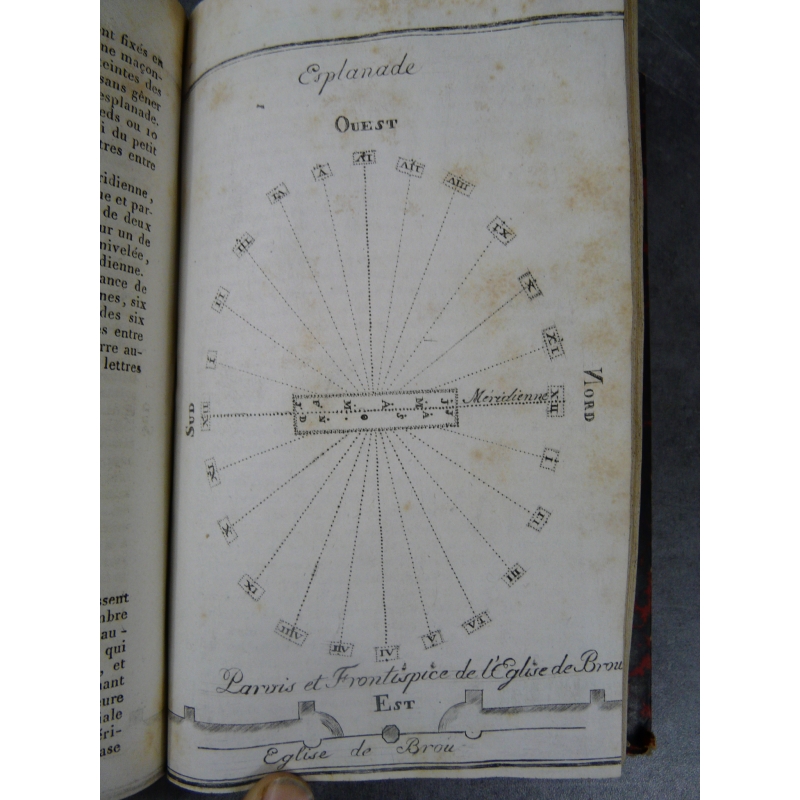 nt fixés en
ne maçon-
eintes des
sans gêner
esplanade.
eds ou 10
i du petit
tres entre
ridienne,
ne et par-
de deux
ur un de
nivelée,
dienne.
ance de
nes, six
des six
s entre
rre au-
lettres
ssent
mbre
au-
qui
, et
nant
eure
nale
éri-
ase
Esplanade
OUEST
VI
V
VII
VIII
IV
III
IX
II
X
I
XI
SUD
XII
Meridienne
XII
NORD
J D
F N
M O
A S
M A
J J
XI
I
X
II
IX
III
VIII
VII
VI
V
Parvis et Frontispice de l'Eglise de Brou
EST
Eglise de Brou